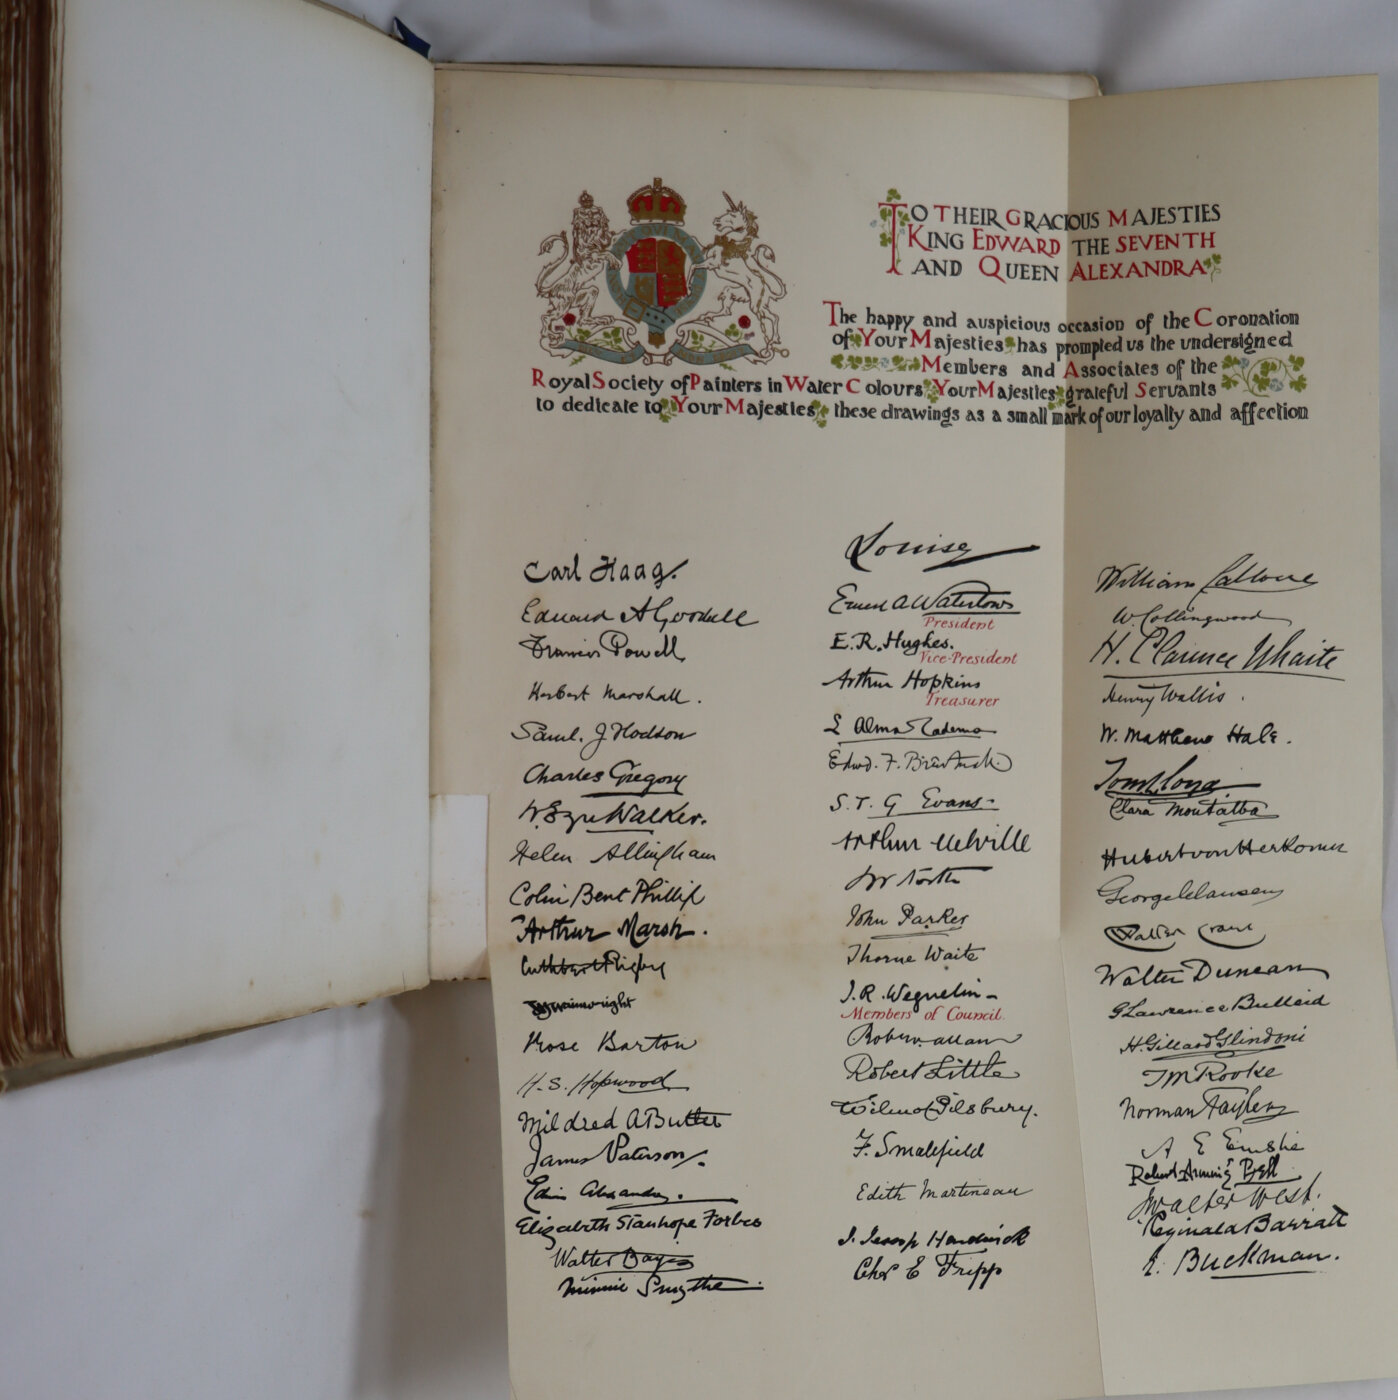 TO THEIR GRACIOUS MAJESTIES
KING EDWARD THE SEVENTH
AND QUEEN ALEXANDRA
The happy and auspicious occasion of the Coronation
of Your Majesties has prompted us the undersigned
Members and Associates of the
Royal Society of Painters in Water Colours Your Majesties grateful Servants
to dedicate to Your Majesties these drawings as a small mark of our loyalty and affection
Carl Haag.
Edward A Goodall
Francis Powell
Herbert Marshall.
Saml. J Hodson
Charles Gregory
W. Eyre Walker.
Helen Allingham
Colin Bent Phillip
Arthur Marsh.
Cuthbert Rigby
Wainwright
Rose Barton
H. S. Hopwood
Mildred A Butler
James Paterson.
Edwin Alexander.
Elizabeth Stanhope Forbes
Walter Bayes
Minnie Smythe
Louise
Ernest A Waterlow
President
E. R. Hughes.
Vice-President
Arthur Hopkins
Treasurer
L Alma Tadema
Edwd. F. Brewtnall
S. T. G Evans
Arthur Melville
JW North
John Parker
Thorne Waite
J. R. Weguelin
Members of Council.
Robt W. Allan
Robert Little
Wilmot Pilsbury.
F. Smallfield
Edith Martineau
J. Jessop Hardwick
Chas E Fripp
William Callow
W. Collingwood
H. Clarence Whaite
Henry Wallis.
W. Matthew Hale.
Tom Lloyd
Clara Montalba
Hubert von Herkomer
George Clausen
Walter Crane
Walter Duncan
G Lawrence Bulleid
H. Gillard Glindoni
T M Rooke
Norman Tayler
A E Emslie
Robert Anning Bell
J Walter West.
Reginald Barratt
E. Buckman.